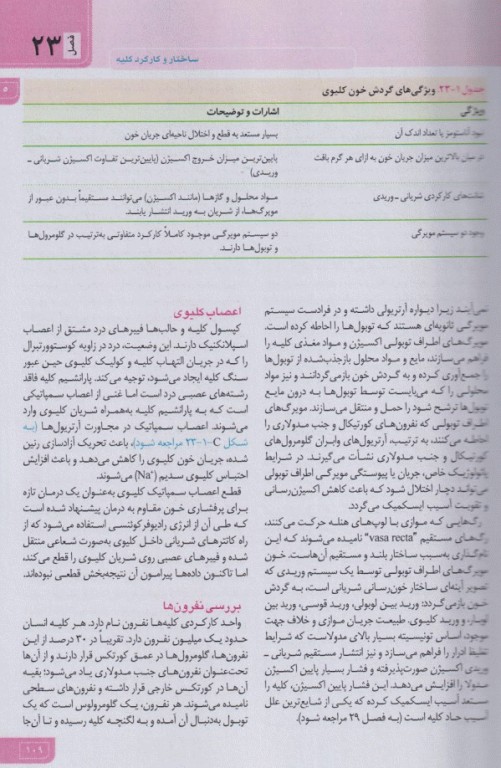 فصل ۲۳
ساختار و کارکرد کلیه
جدول ۱-۲۳ ویژگی‌های گردش خون کلیوی
ویژگی
اشارات و توضیحات
نبود آناستوموز یا تعداد اندک آن
بسیار مستعد به قطع و اختلال ناحیه‌ای جریان خون
در میان بالاترین میزان جریان خون به ازای هر گرم بافت
پایین‌ترین میزان خروج اکسیژن (پایین‌ترین تفاوت اکسیژن شریانی ـ
وریدی)
شنت‌های کارکردی شریانی ـ وریدی
مواد محلول و گازها (مانند اکسیژن) می‌توانند مستقیماً بدون عبور از
مویرگ‌ها، از شریان به ورید انتشار یابند.
وجود دو سیستم مویرگی
دو سیستم مویرگی موجود کاملاً کارکرد متفاوتی به‌ترتیب در گلومرول‌ها
و توبول‌ها دارند.
نمی‌آیند زیرا دیواره آرتریولی داشته و در فرادست سیستم
مویرگی ثانویه‌ای هستند که توبول‌ها را احاطه کرده است.
مویرگ‌های اطراف توبولی اکسیژن و مواد مغذی کلیه را
فراهم می‌سازند، مایع و مواد محلول بازجذب‌شده از توبول‌ها
را جمع‌آوری کرده و به گردش خون بازمی‌گردانند و نیز مواد
محلولی را که می‌بایست توسط توبول‌ها به درون مایع
توبول‌ها ترشح شود را حمل و منتقل می‌سازند. مویرگ‌های
اطراف توبولی که نفرون‌های کورتیکال و جنب مدولاری را
احاطه می‌کنند، به ترتیب، از آرتریول‌های وابران گلومرول‌های
کورتیکال و جنب مدولاری نشأت می‌گیرند. در شرایط
پاتولوژیک خاص، جریان یا پیوستگی مویرگی اطراف توبولی
می‌تواند دچار اختلال شود که باعث کاهش اکسیژن‌رسانی
و تقویت آسیب ایسکمیک می‌گردد.
رگ‌هایی که موازی با لوپ‌های هنله حرکت می‌کنند،
رگ‌های مستقیم "vasa recta" نامیده می‌شوند که این
نام‌گذاری به‌سبب ساختار بلند و مستقیم آن‌هاست. خون
مویرگ‌های اطراف توبولی توسط یک سیستم وریدی که
تصویر آینه‌ای ساختار خون‌رسانی شریانی است، به گردش
خون بازمی‌گردد: ورید بین لوبولی، ورید قوسی، ورید بین
لوبار، و ورید کلیوی. طبیعت جریان موازی و خلاف جهت
موجود، اساس تونیسیته بسیار بالای مدولاست که شرایط
تغلیظ ادرار را فراهم می‌سازد و نیز انتشار مستقیم شریانی ـ
وریدی اکسیژن صورت‌پذیرفته و فشار بسیار پایین اکسیژن
مدولا را افزایش می‌دهد. این فشار پایین اکسیژن، کلیه را
مستعد آسیب ایسکمیک کرده که یکی از شایع‌ترین علل
آسیب حاد کلیه است (به فصل ۲۹ مراجعه شود).
اعصاب کلیوی
کپسول کلیه و حالب‌ها فیبرهای درد مشتق از اعصاب
اسپلانکنیک دارند. این وضعیت، درد در زاویه کوستوورتبرال
را که در جریان التهاب کلیه و کولیک کلیوی حین عبور
سنگ کلیه ایجاد می‌شود، توجیه می‌کند. پارانشیم کلیه فاقد
رشته‌های عصبی درد است اما غنی از اعصاب سمپاتیکی
است که به پارانشیم کلیه به‌همراه شریان کلیوی وارد
می‌شوند. اعصاب سمپاتیک در مجاورت آرتریول‌ها (به
شکل ۱-۲۳-C مراجعه شود)، باعث تحریک آزادسازی رنین
شده، جریان خون کلیوی را کاهش می‌دهد و باعث افزایش
احتباس کلیوی سدیم (Na⁺) می‌شوند.
قطع اعصاب سمپاتیک کلیوی به‌عنوان یک درمان تازه
برای پرفشاری خون مقاوم به درمان پیشنهاد شده است
که طی آن از انرژی رادیوفرکوئنسی استفاده می‌شود که از
راه کاتترهای شریانی داخل کلیوی به‌صورت شعاعی منتقل
شده و فیبرهای عصبی روی شریان کلیوی را قطع می‌کند،
اما تاکنون داده‌ها پیرامون آن نتیجه‌بخش قطعی نبوده‌اند.
بررسی نفرون‌ها
واحد کارکردی کلیه‌ها نفرون نام دارد. هر کلیه انسان
حدود یک میلیون نفرون دارد. تقریباً در ۳۰ درصد از این
نفرون‌ها، گلومرول‌ها در عمق کورتکس قرار دارند و از آن‌ها
تحت‌عنوان نفرون‌های جنب مدولاری یاد می‌شود؛ بقیه
آن‌ها در کورتکس خارجی قرار داشته و نفرون‌های سطحی
نامیده می‌شوند. هر نفرون، یک گلومرولوس است که یک
توبول به‌دنبال آن آمده و به لگنچه کلیه رسیده و تا آن‌جا
۱۰۹